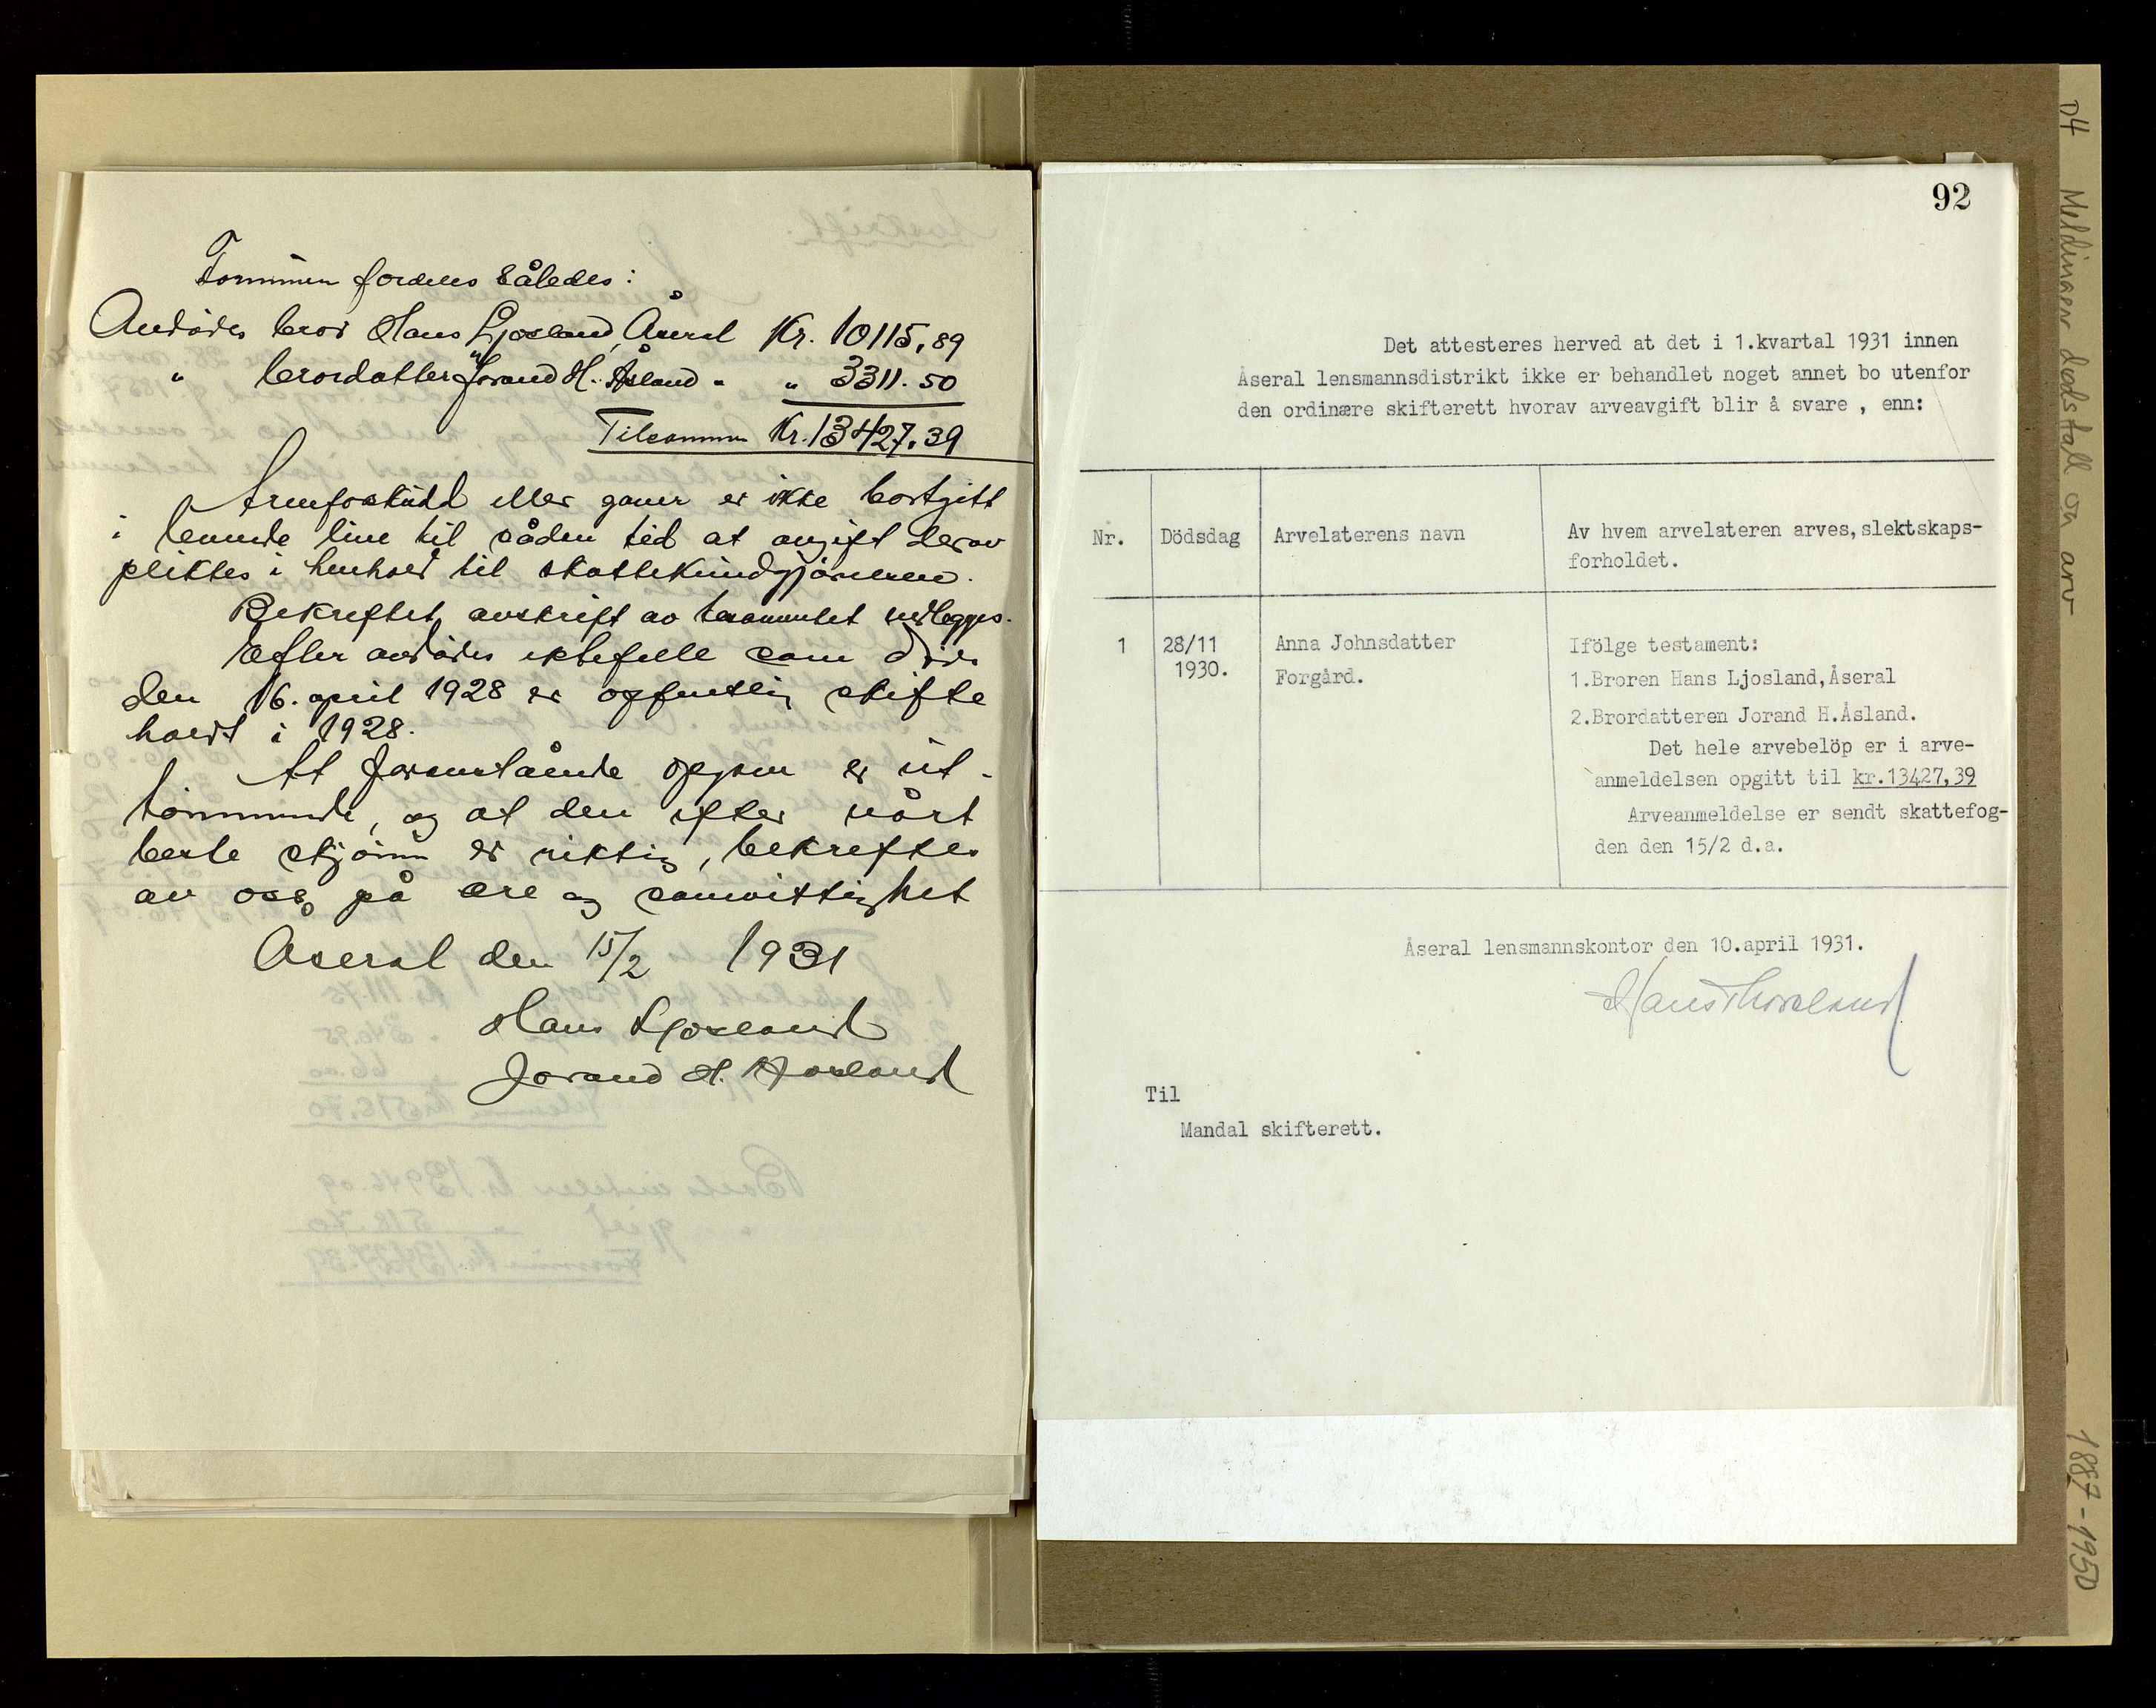 Formuen fordeles således:
Avdødes bror Hans Ljosland, Åseral Kr. 10115,89
" brordatter Jorand H. Åsland " " 3311.50
Tilsammen Kr. 13427,39
Arveforskudd eller gaver er ikke bortgitt
i levende live til sådan tid at avgift derav
pliktes i henhold til skattekundgjørelsen.
Bekreftet avskrift av testamentet vedlegges.
Efter avdødes ektefelle som døde
den 16. april 1928 er offentlig skifte
holdt i 1928.
At foranstående opgave er ut-
tømmende, og at den efter vårt
beste skjønn er riktig, bekreftes
av oss på ære og samvittighet
Åseral den 15/2 1931
Hans Ljosland
Jorand H. Aasland
92
Det attesteres herved at det i 1.kvartal 1931 innen
Åseral lensmannsdistrikt ikke er behandlet noget annet bo utenfor
den ordinære skifterett hvorav arveavgift blir å svare , enn:
Nr. Dödsdag Arvelaterens navn Av hvem arvelateren arves,slektskaps-
forholdet.
1 28/11 Anna Johnsdatter Ifölge testament:
1930. Forgård. 1.Broren Hans Ljosland,Åseral
2.Brordatteren Jorand H.Åsland.
Det hele arvebelöp er i arve-
anmeldelsen opgitt til kr.13427,39
Arveanmeldelse er sendt skattefog-
den den 15/2 d.a.
Åseral lensmannskontor den 10.april 1931.
Til
Mandal skifterett.
D4 Meldinger dødsfall og arv 1887-1950